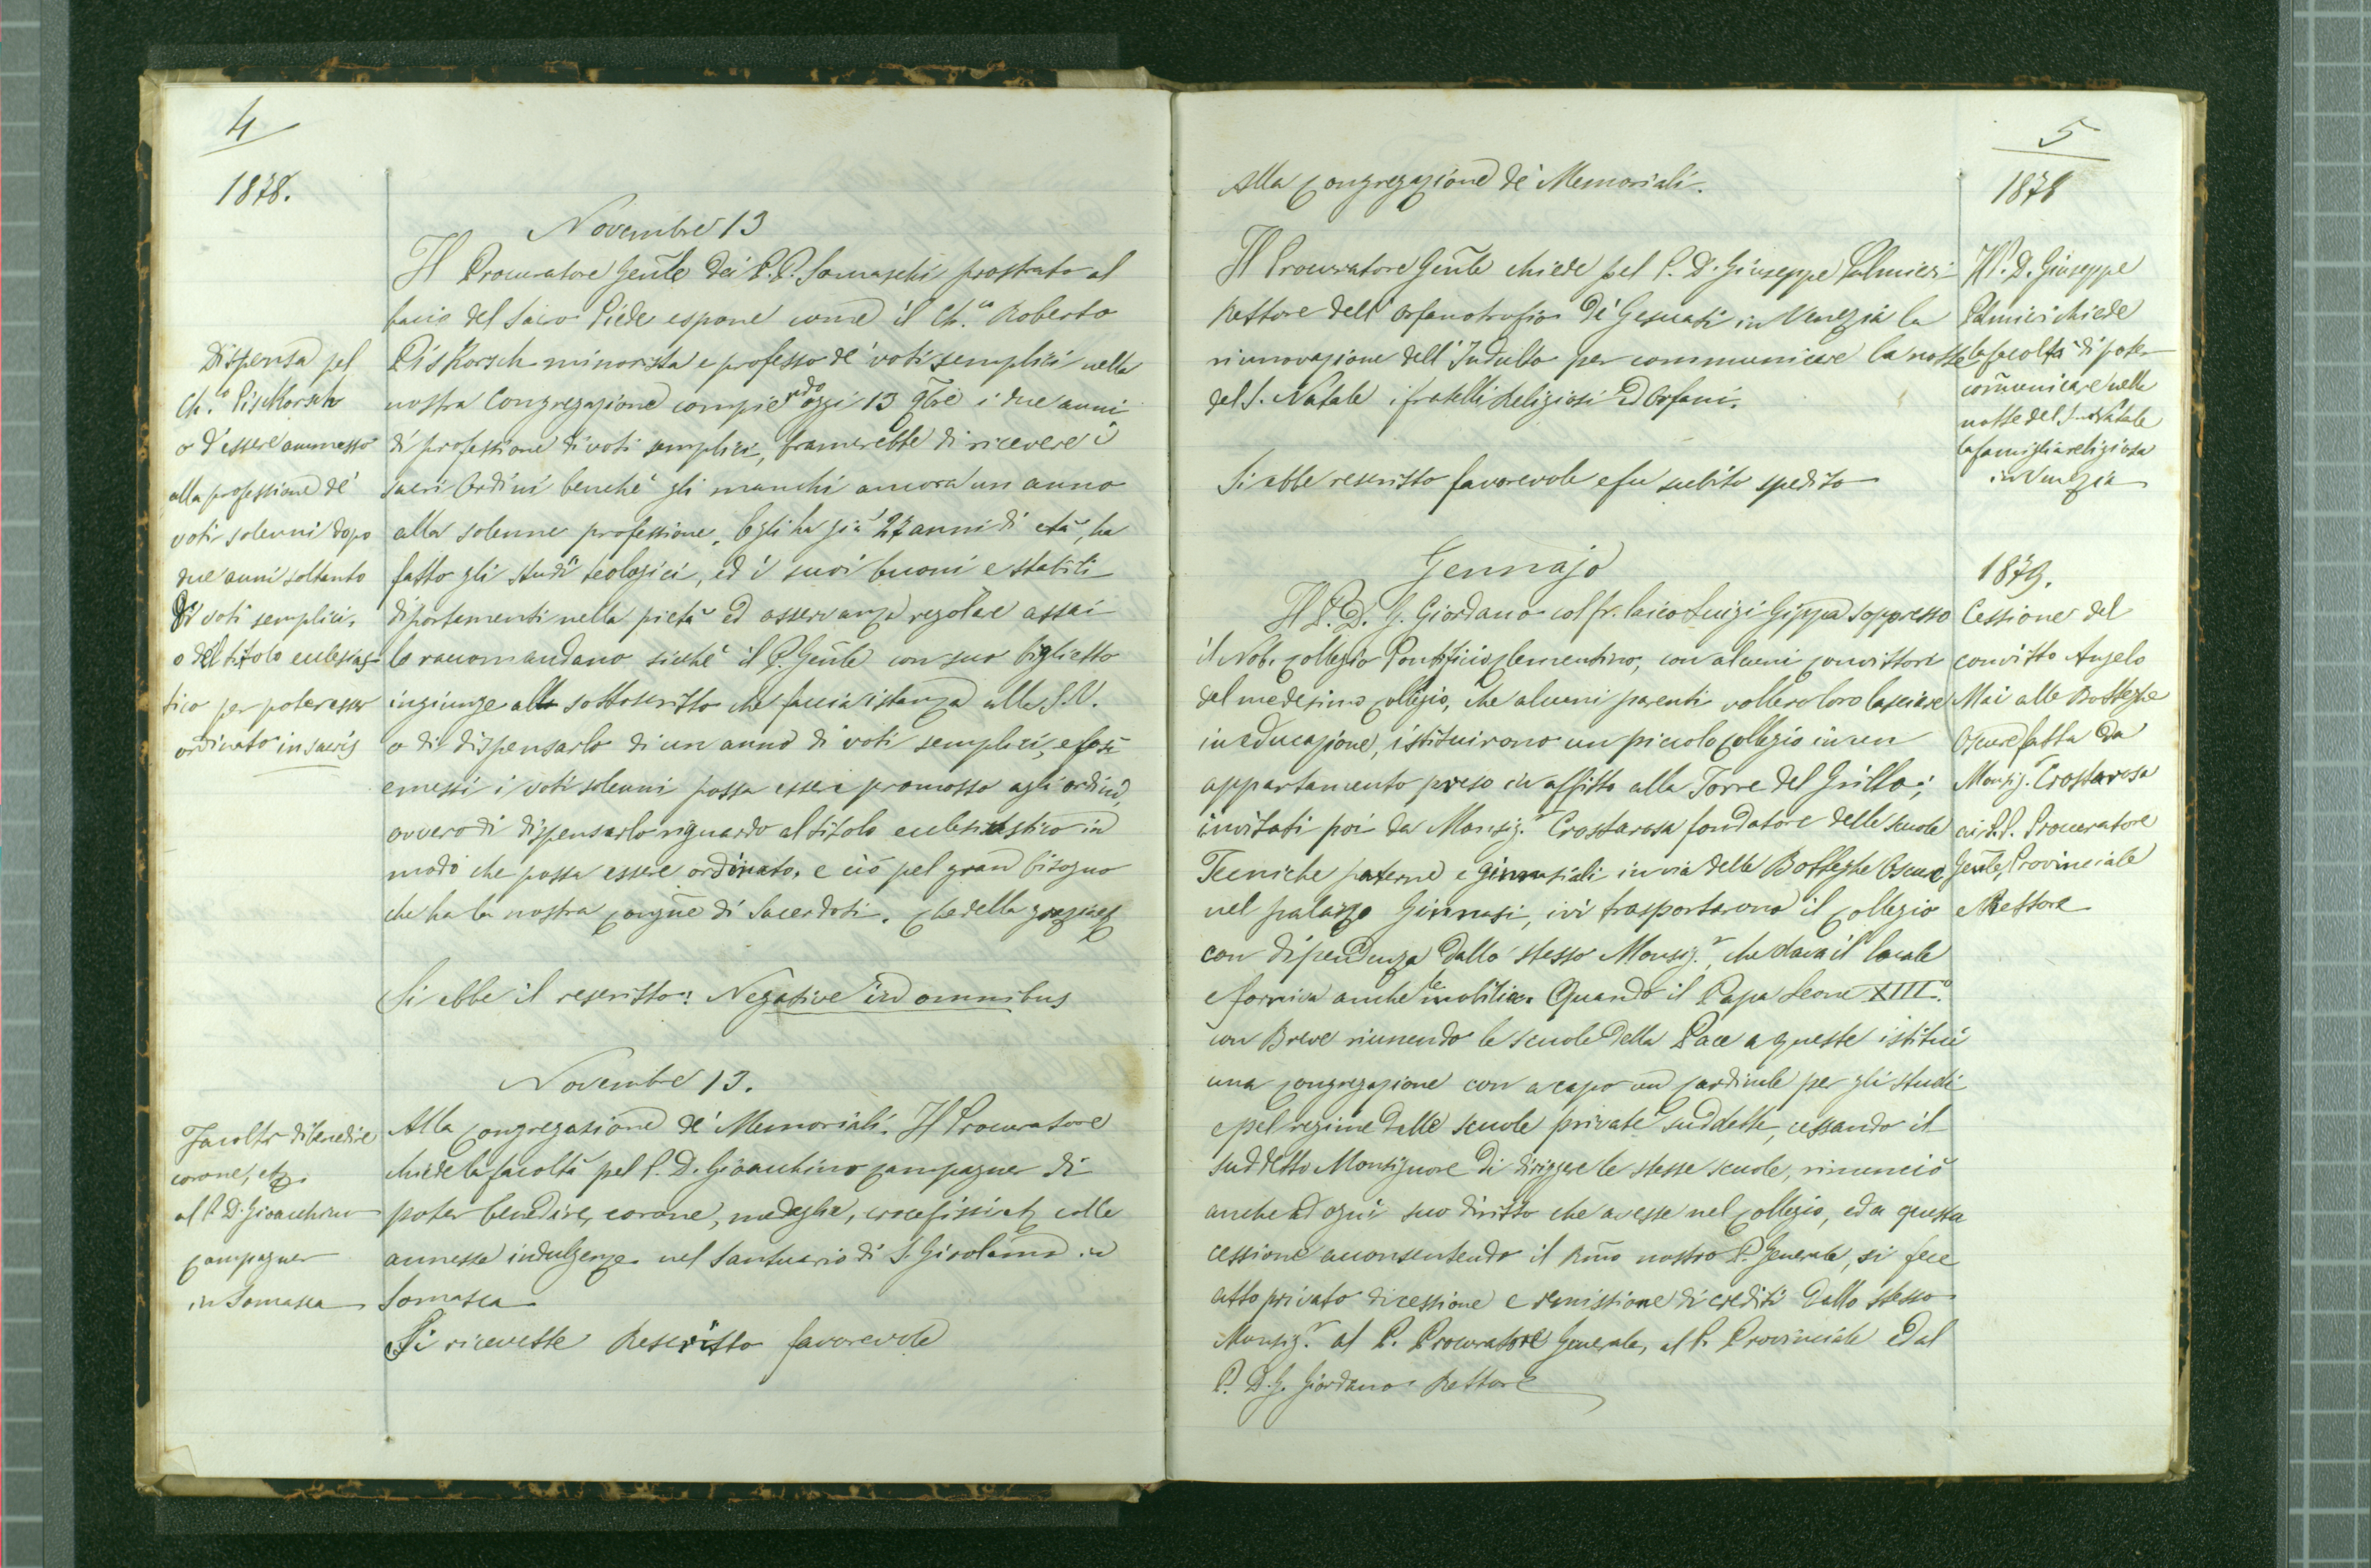 4
1878.
Novembre 13
Il Procuratore Gen̄le dei P.P. Somaschi prostrato al
bacio del Sacro Piede espone come il Ch.co Roberto
Piskorsch minorista e professo de' voti semplici nella
nostra Congregazione compiendo oggi 13 9bre i due anni
di professione di voti semplici, bramerebbe di ricevere i
sacri Ordini benchè gli manchi ancora un anno
alla solenne professione. Egli ha già 27 anni di età, ha
fatto gli studi teologici, ed i suoi buoni e stabili
diportamenti nella pietà ed osservanza regolare assai
lo raccomandano sicchè il P. Gen̄le con suo biglietto
ingiunge allo sottoscritto che faccia istanza alla S.V.
o di dispensarlo di un anno di voti semplici, e così
emessi i voti solenni possa essere promosso agli ordini,
ovvero di dispensarlo riguardo al titolo ecclesiastico in
modo che possa essere ordinato, e ciò pel gran bisogno
che ha la nostra Congne di Sacerdoti. Che della grazia etc
Si ebbe il rescritto: Negative in omnibus
Dispensa pel
Ch.co Piskorsch
o d'essere ammesso
alla professione de'
voti solenni dopo
due anni soltanto
di voti semplici,
o del titolo ecclesias-
tico per poter esser
ordinato in sacris
Novembre 13.
Alla Congregazione de' Memoriali. Il Procuratore
chiede la facoltà pel P. D. Gioacchino Campagner di
poter benedire, corone, medaglie, crocefissi etc colle
annesse indulgenze nel Santuario di S. Girolamo in
Somasca
Si ricevette Rescritto favorevole
Facoltà di benedire
corone, etc.
al P. D. Gioacchino
Campagner
in Somasca
5
1878
Alla Congregazione de' Memoriali.
Il Procuratore Gen̄le chiede pel P. D. Giuseppe Palmieri
Rettore dell'Orfanotrofio de' Gesuati in Venezia la
rinnovazione dell'Indulto per communicare la notte
del S. Natale i fratelli Religiosi ed Orfani.
Si ebbe rescritto favorevole e fu subito spedito
Il P. D. Giuseppe
Palmieri chiede
la facoltà di poter
com̄unicare nella
notte del S. Natale
la famiglia religiosa
in Venezia
Gennajo
Il P. D. G. Giordano col fr. laico Luigi Gippa soppresso
il Nob. Collegio Pontificio Clementino, con alcuni Convittori
del medesimo Collegio, che alcuni parenti vollero loro lasciare
in educazione, istituirono un piccolo Collegio in un
appartamento preso in affitto alla Torre del Grillo;
invitati poi da Monsig.r Crostarosa fondatore delle scuole
Tecniche paterne e ginnasiali in via delle Botteghe Oscure
nel palazzo Ginnasi, ivi trasportarono il Collegio
con dipendenza dallo stesso Monsig.r, che dava il locale
e forniva anche le mobilia. Quando il Papa Leone XIII.o
con Breve riunendo le scuole della Pace a queste istituì
una Congregazione con a capo un Cardinale per gli studi
e pel regime delle scuole private suddette, cessando il
suddetto Monsignore di dirigere le stesse scuole, rinunciò
anche ad ogni suo diritto che avesse nel Collegio, ed a questa
cessione acconsentendo il Rm̄o nostro P. Generale, si fece
atto privato di cessione e remissione di crediti dallo stesso
Monsig.r al P. Procuratore Generale, al P. Provinciale ed al
P. D. G. Giordano Rettore
1879.
Cessione del
convitto Angelo
Mai alle Botteghe
Oscure fatta da
Monsig. Crostarosa
ai P.P. Procuratore
Gen̄le, Provinciale
e Rettore